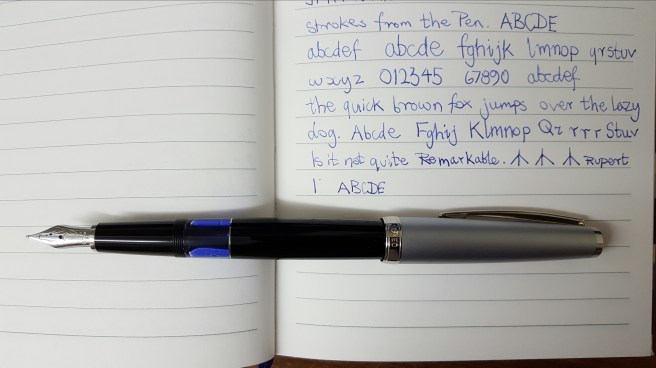 strokes from the Pen. ABCDE
abcdef abcde fghijk lmnop qrstuv
wxyz 012345 67890 abcdef
the quick brown fox jumps over the lazy
dog. Abcde Fghij Klmnop Qz r r r Stuv
Is it not quite Remarkable. Rupert
I ABCDE